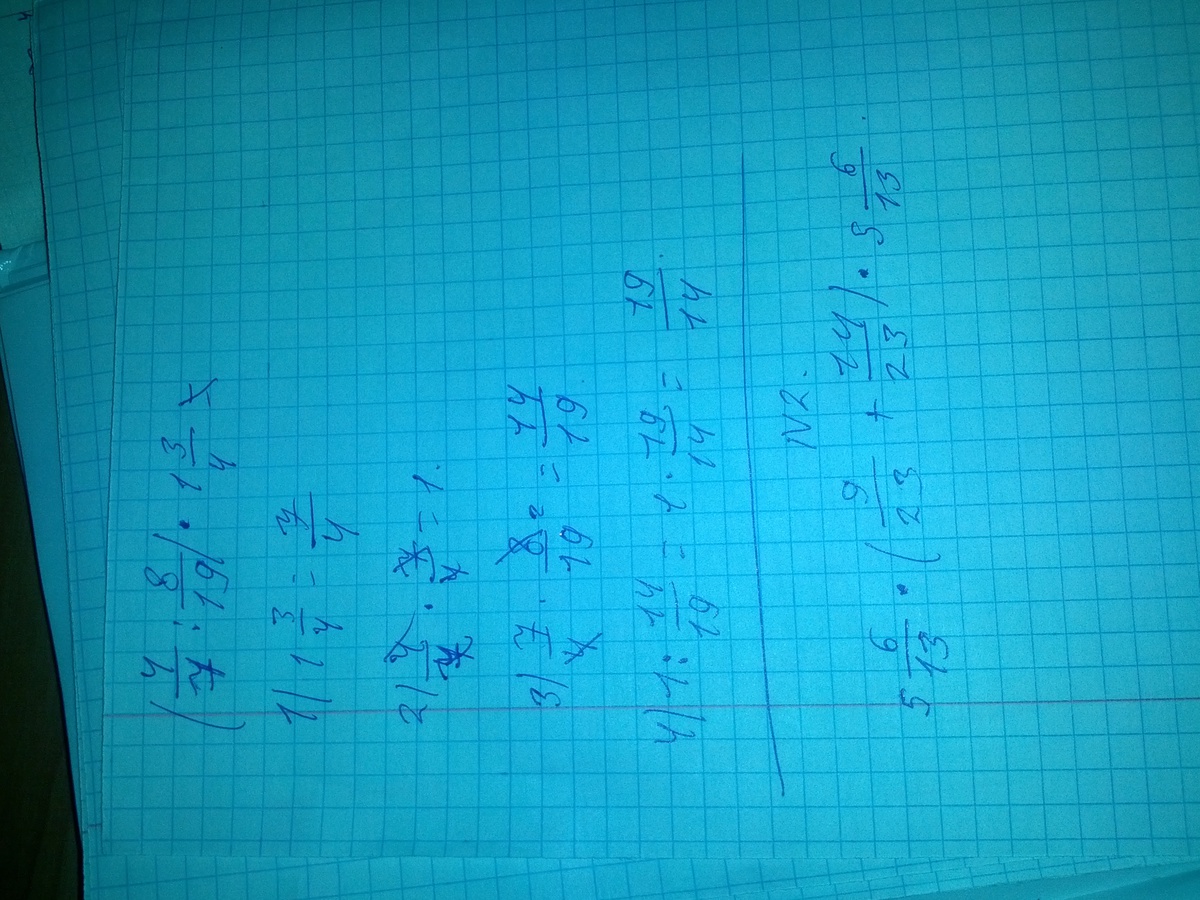 (4/7 : 8/19) · 1 3/4
1) 1 3/4 = 7/4
2) 4/7 · 7/4 = 1.
3) 7/4 · 8/19 2 = 14/19
4) 1 : 14/19 = 1 · 19/14 = 19/14.
N2.
5 6/13 · (9/23 + 14/23) · 5 6/13.